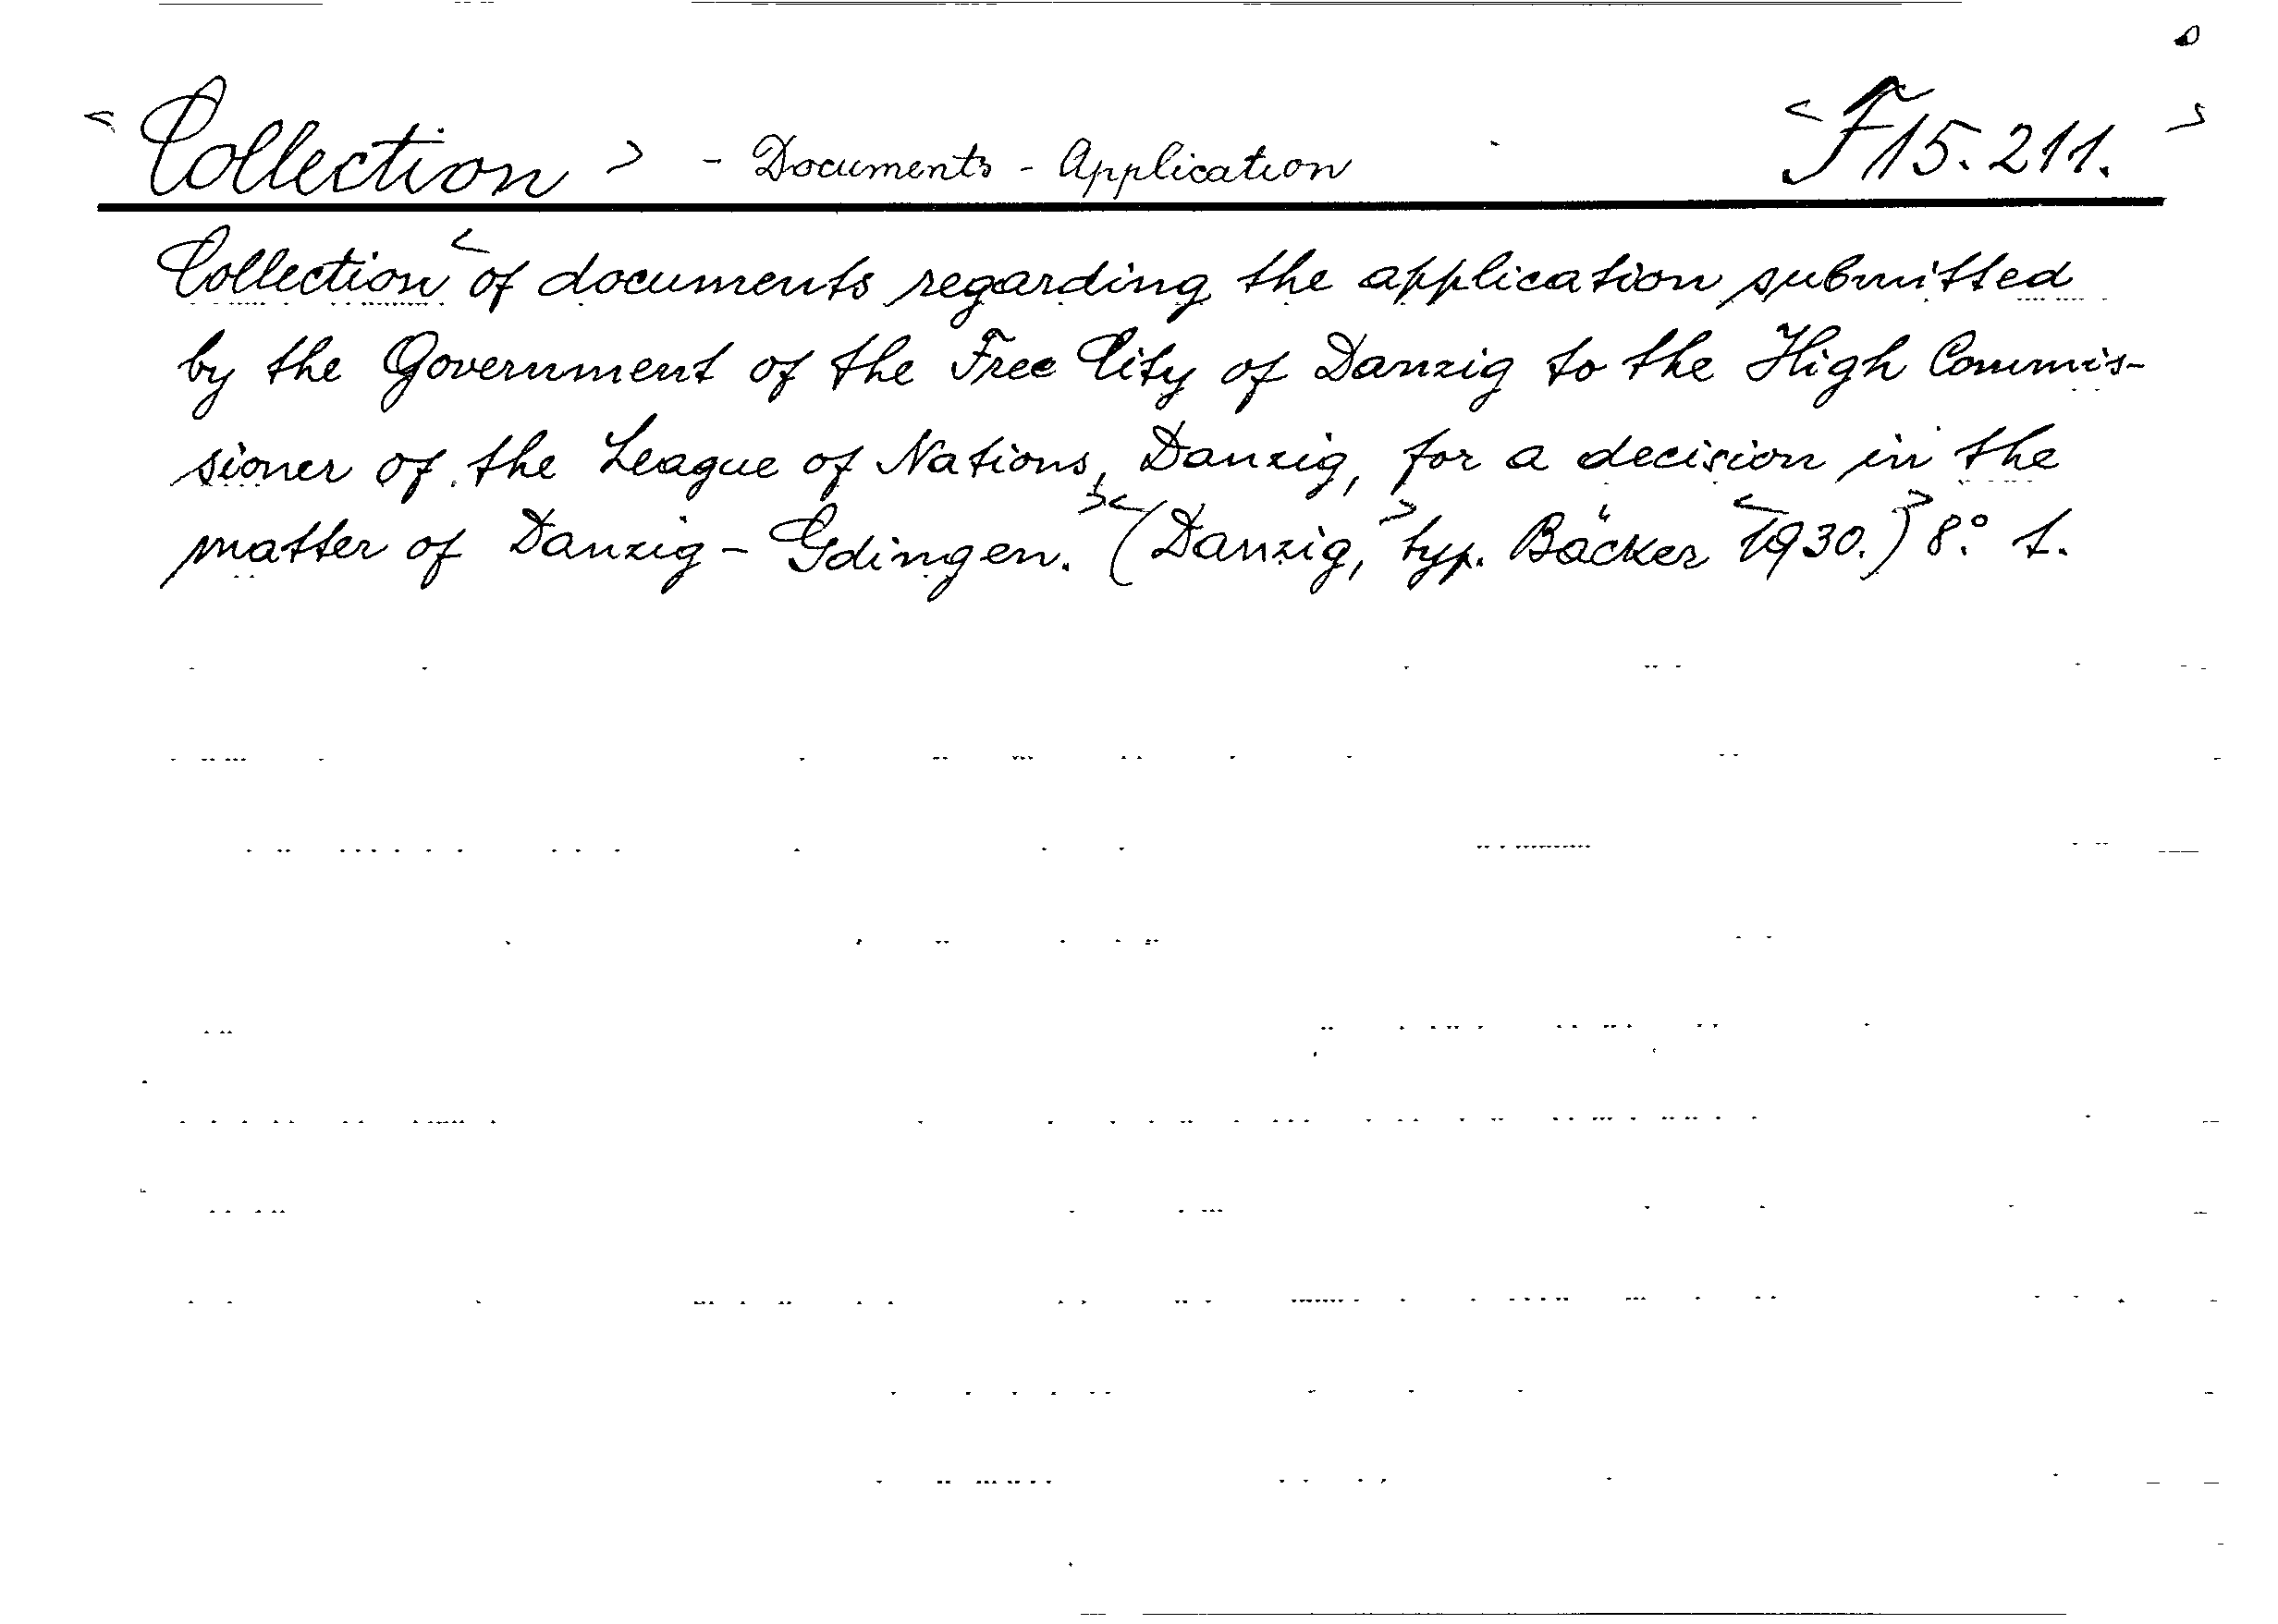 < Collection > - Documents - Application < F 15.211. >
Collection < of documents regarding the application submitted
by the Government of the Free City of Danzig to the High Commis-
sioner of the League of Nations, Danzig, for a decision in the
matter of Danzig - Gdingen. > < (Danzig, > typ. Bäcker < 1930.) > 8.° t.